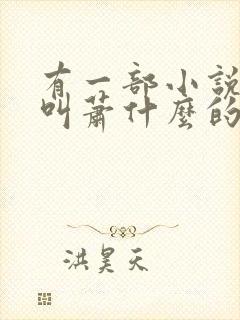 有一部小說
叫蕭什麼的
洪昊天